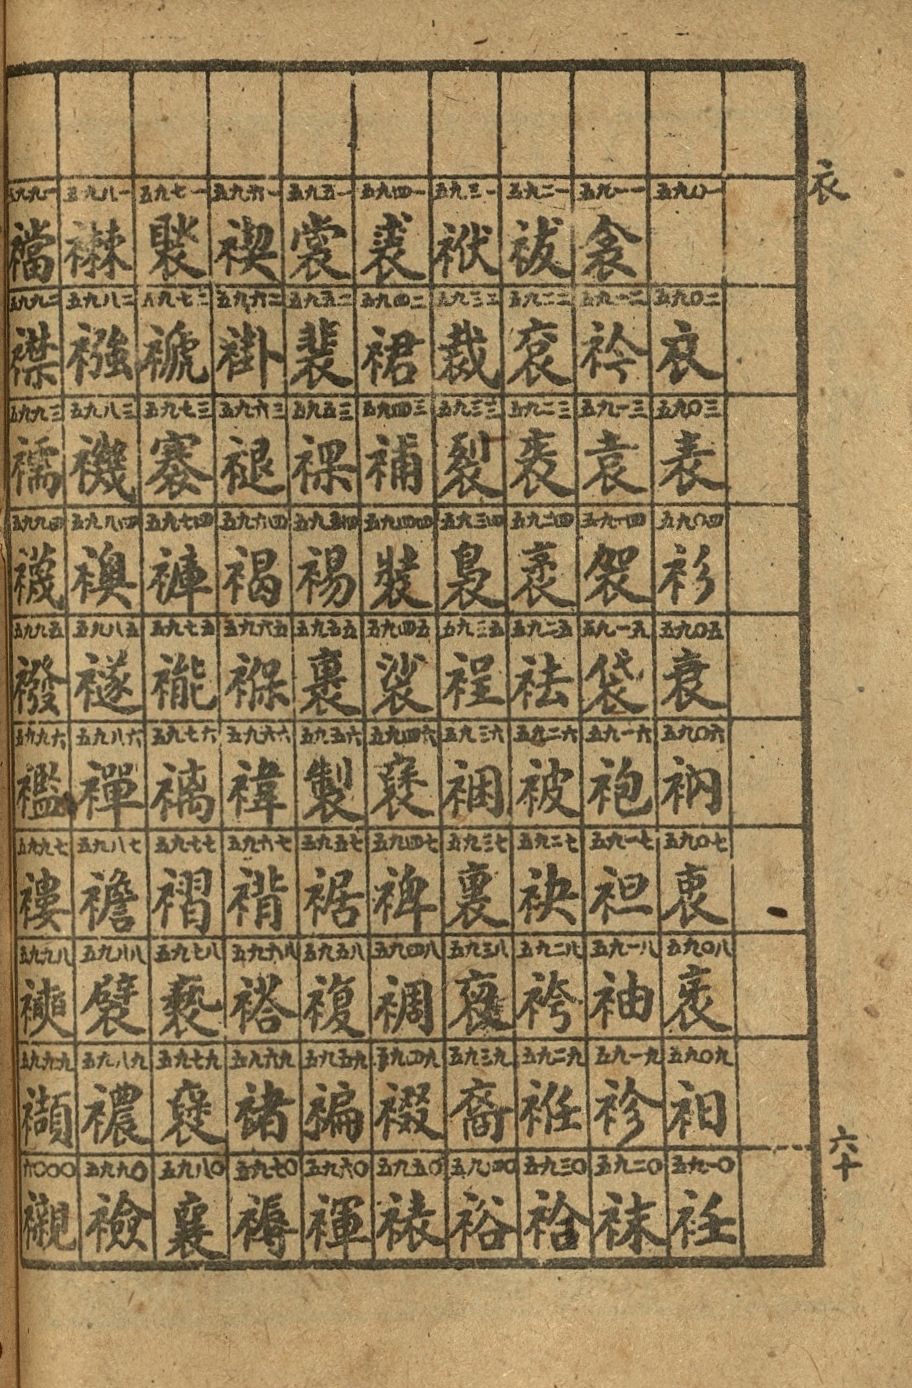 衣
五九〇一
五九〇二 衣
五九〇三 表
五九〇四 衫
五九〇五 衰
五九〇六 衲
五九〇七 衷
五九〇八 衺
五九〇九 衵
五九一〇 衽
五九一一 衾
五九一二 衿
五九一三 袁
五九一四 袈
五九一五 袋
五九一六 袍
五九一七 袒
五九一八 袖
五九一九 袗
五九二〇 袜
五九二一 袚
五九二二 袞
五九二三
五九二四 袤
五九二五 袪
五九二六 被
五九二七 袂
五九二八 袴
五九二九 袵
五九三〇 袷
五九三一 袱
五九三二 裁
五九三三 裂
五九三四 裊
五九三五 裎
五九三六 裍
五九三七 裏
五九三八
五九三九 裔
五九四〇 裕
五九四一 裘
五九四二 裙
五九四三 補
五九四四 裝
五九四五 裟
五九四六
五九四七 裨
五九四八 裯
五九四九 裰
五九五〇 裱
五九五一 裳
五九五二 裴
五九五三 裸
五九五四 裼
五九五五 裹
五九五六 製
五九五七 裾
五九五八 複
五九五九 褊
五九六〇 褌
五九六一 褉
五九六二 褂
五九六三 褪
五九六四 褐
五九六五 褓
五九六六 褘
五九六七 褙
五九六八 褡
五九六九 褚
五九七〇 褥
五九七一 褧
五九七二 褫
五九七三 褰
五九七四 褲
五九七五 褦
五九七六 褵
五九七七 褶
五九七八 褻
五九七九 褒
五九八〇 襄
五九八一 襋
五九八二 襁
五九八三 禨
五九八四 襖
五九八五 襚
五九八六 襌
五九八七 襜
五九八八 襞
五九八九 襛
五九九〇 襝
五九九一 襠
五九九二 襟
五九九三 襦
五九九四 襪
五九九五 襏
五九九六 襤
五九九七 褸
五九九八 襫
五九九九 襭
六〇〇〇 襯
六十